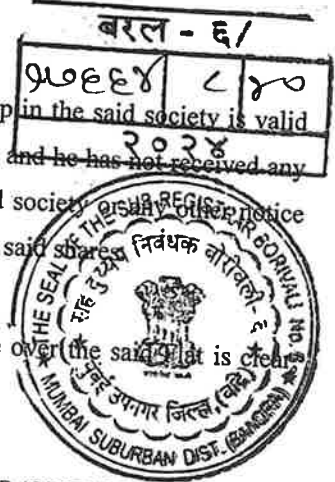 बरल - ६/
१७६६४ ८ ४०
in the said society is valid
२०२४
and he has not received any
society or any other notice
said shares
over the said Flat is clear
THE SEAL OF THE SUB REGISTRAR BORIVALI NO. 6
सह दुय्यम निबंधक बोरीवली - ६
मुंबई उपनगर जिल्हा, (वांद्रे)
MUMBAI SUBURBAN DIST. (BANDRA)